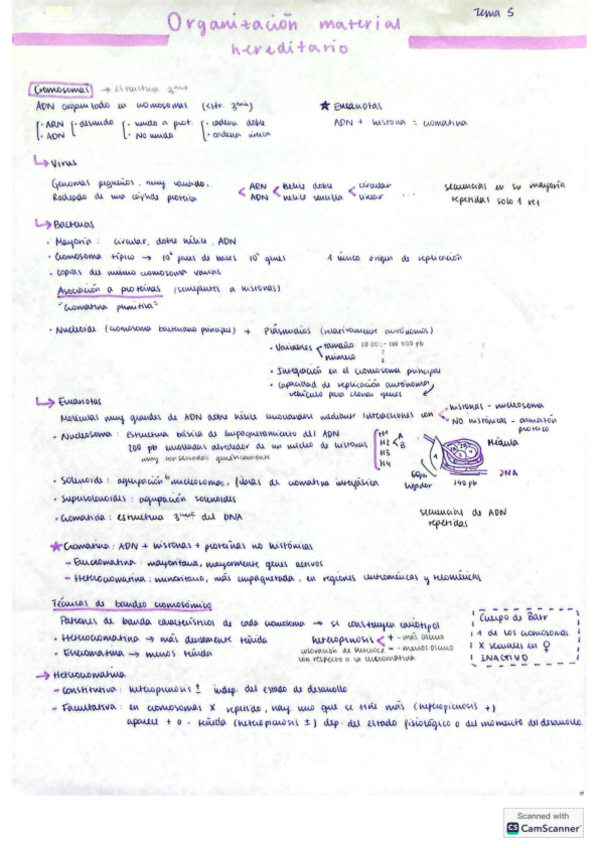 Tema 5
Organización material
hereditario
Cromosomas → estructura 3ária
ADN organizado en cromosomas (estr. 3ária)
★ Eucariotas
· ARN · desnudo · unido a prot. · cadena doble
· ADN · No unido · cadena única
ADN + histona = cromatina
↳ Virus
Genomas pequeños, muy variado.. < ARN hélice doble < circular ...
Rodeado de una cápside proteica ADN hélice sencilla lineal
secuencias en su mayoría
repetidas solo 1 vez
↳ Bacterias
· Mayoría: circular, doble hélice, ADN
· Cromosoma típico → pares de bases genes 1 único origen de replicación
· copias del mismo cromosoma varias
Asociación a proteínas (semejantes a histonas)
"cromatina primitiva"
· Nucleoide (cromosoma bacteriano principal) + Plásmidos (relativamente autónomos):
· Variables < tamaño
número
· Integración en el cromosoma principal
· Capacidad de replicación autónoma
vehículo para clonar genes
↳ Eucariotas
Moléculas muy grandes de ADN doble hélice mediante interacciones con < histonas - nucleosoma
NO histónicas - armazón
proteico
· Nucleosoma: estructura básica de empaquetamiento del ADN
200 pb enrolladas alrededor de un núcleo de histonas
muy conservadas genéticamente
H1
H2 < A
B
H3
H4
Médula
DNA
60pb
ligador
140 pb
· Solenoide: agrupación nucleosomas, fibras de cromatina interfásica
· Supersolenoides: agrupación solenoides
· Cromátida: estructura 3ária del DNA
secuencias de ADN
repetidas
★ Cromatina: ADN + histonas + proteínas no histónicas
- Eucromatina: mayoritaria, mayormente genes activos
- Heterocromatina: minoritaria, más empaquetada, en regiones centroméricas y teloméricas
Técnicas de bandeo cromosómico
Patrones de banda característicos de cada cromosoma → se construyen cariotipos
· Heterocromatina → más densamente teñida
· Eucromatina → menos teñida
heteropicnosis < + - más oscuro
- - menos oscuro
coloración de heterocr.
con respecto a la eucromatina
Cuerpo de Barr
1 de los cromosomas
X sexuales en ♀
INACTIVO
→ Heterocromatina
- Constitutiva: heteropicnosis ± indep. del estado de desarrollo
- Facultativa: en cromosomas X repetido, hay uno que se tiñe más (heteropicnosis +)
aparece + o - teñida (heteropicnosis ±) dep. del estado fisiológico o del momento del desarrollo.
Scanned with
CS CamScanner